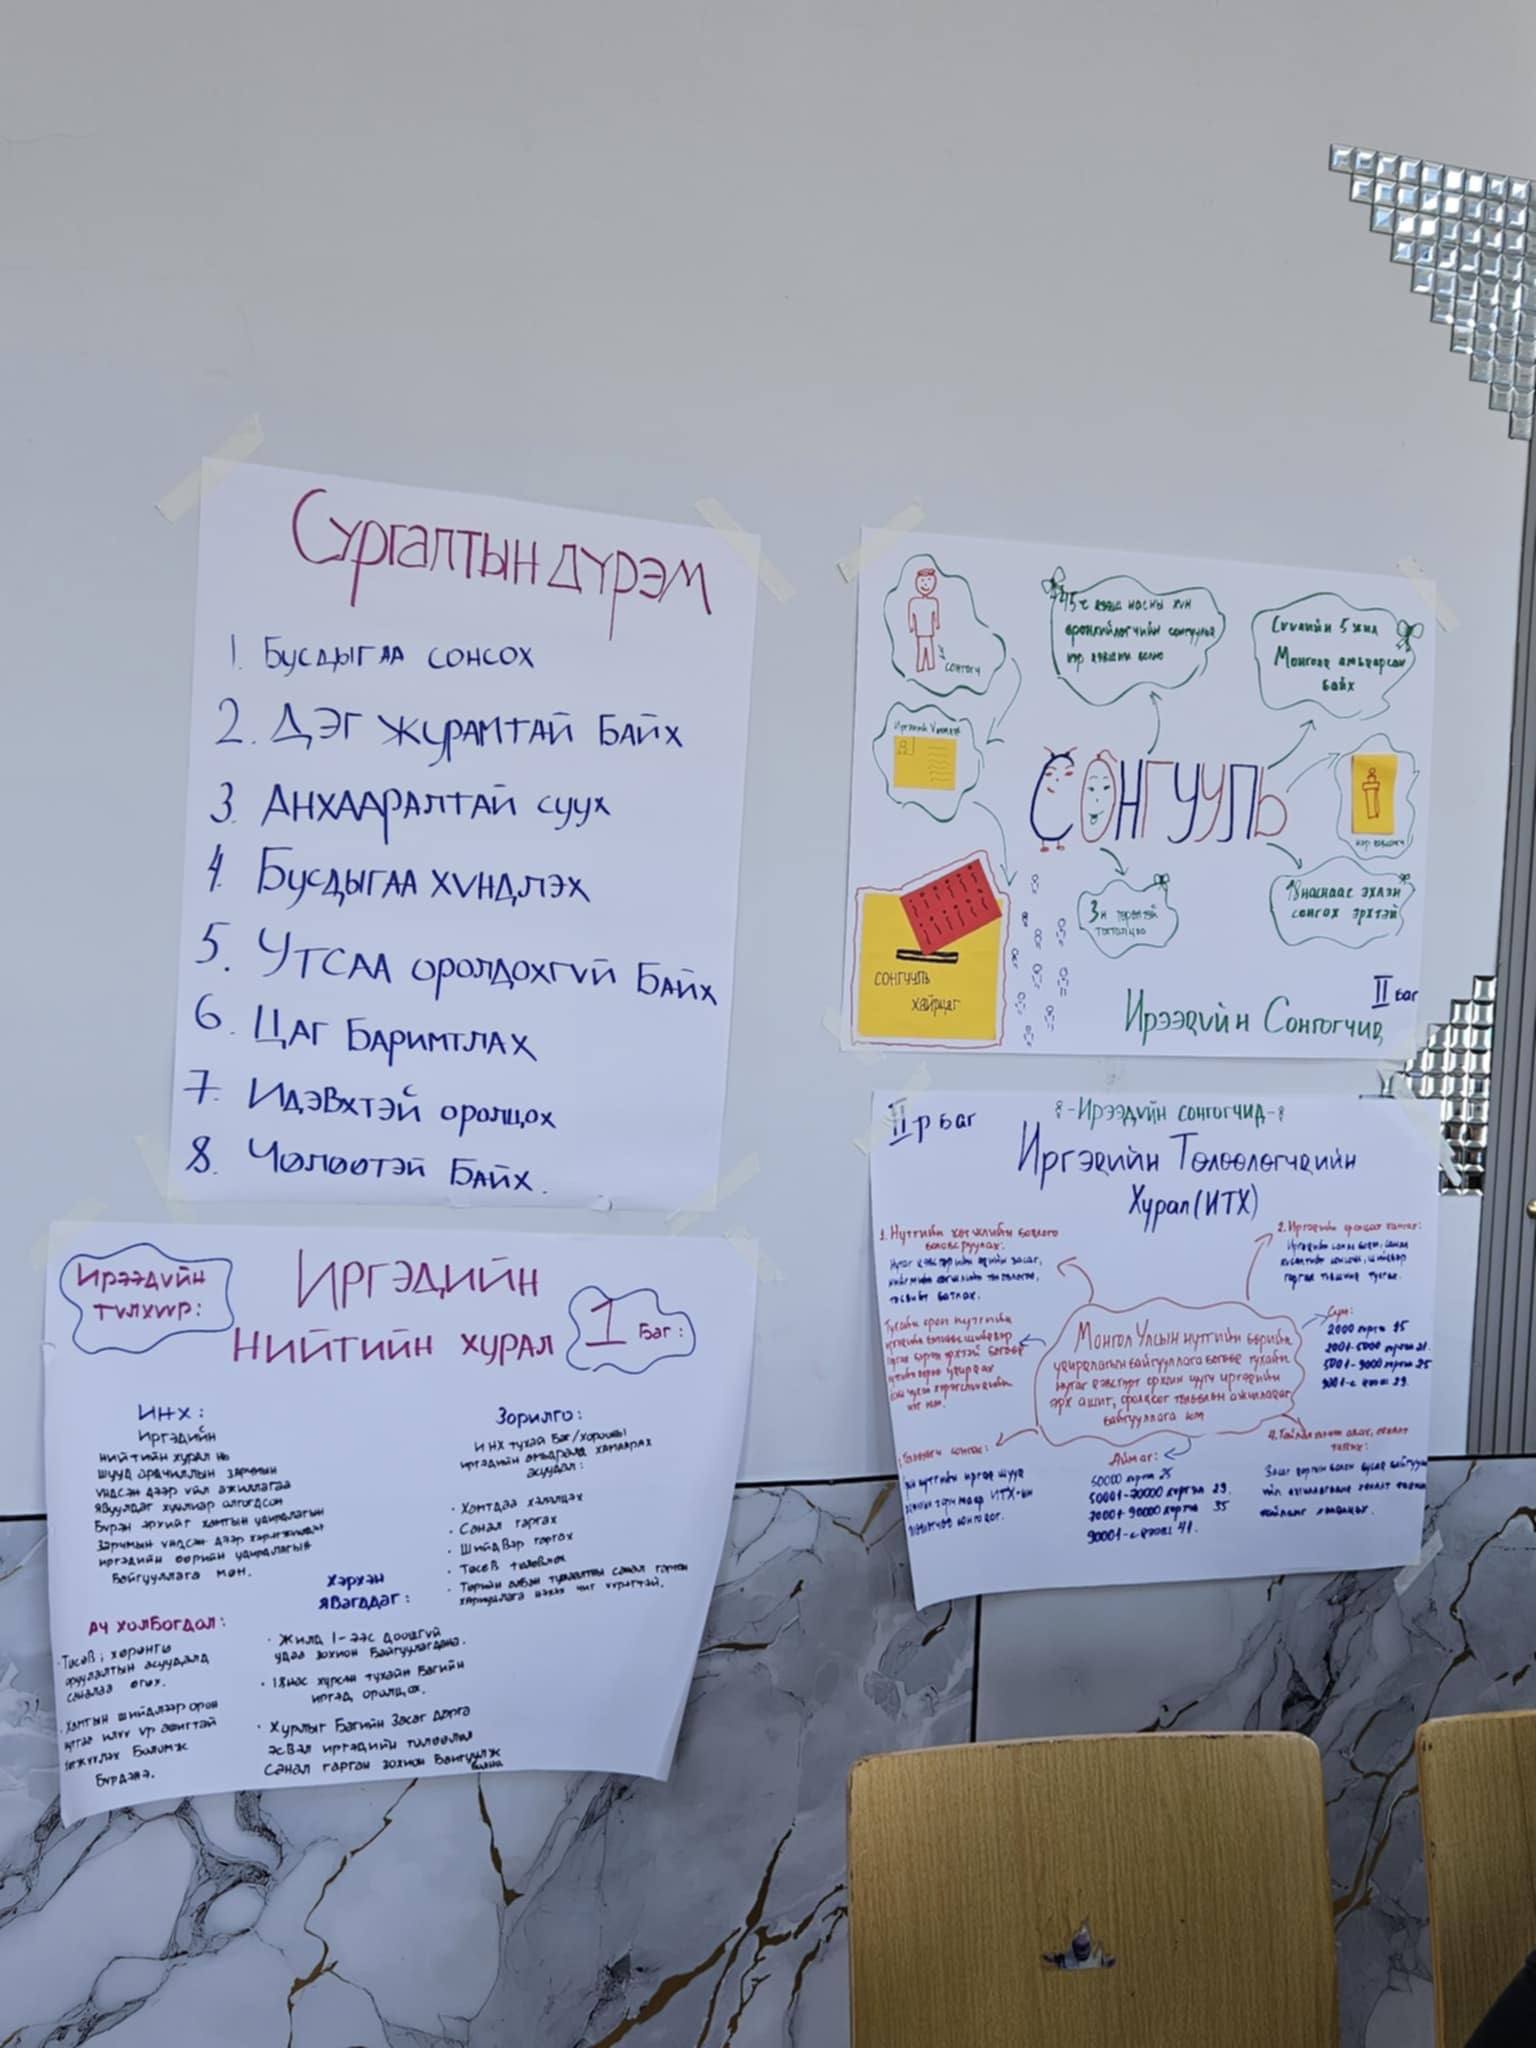 Сургалтын дүрэм
1. Бусдыгаа сонсох
2. Дэг журамтай байх
3. Анхааралтай суух
4. Бусдыгаа хүндлэх
5. Утсаа оролдохгүй байх
6. Цаг баримтлах
7. Идэвхтэй оролцох
8. Чөлөөтэй байх.
сонгогч
45-с дээш насны хүн
ерөнхийлөгчийн сонгуульд
нэр дэвшигч болно
Сүүлийн 5 жил
Монголд амьдарсан
байх
Иргэний Үнэмлэх
СОНГУУЛЬ
нэр дэвшигч
3н төрөлтэй
18 наснаас эхлэн
сонгох эрхтэй
сонгууль
хайрцаг
II баг
Ирээдүйн Сонгогчид
Ирээдүйн
түлхүүр:
Иргэдийн
Нийтийн хурал
1 баг:
ИНХ:
Иргэдийн
нийтийн хурал нь
шууд ардчиллын зарчмын
үндсэн дээр үйл ажиллагаа
явуулдаг хуулиар олгогдсон
бүрэн эрхийг хамтын удирдлагын
зарчмын үндсэн дээр хэрэгжүүлдэг
иргэдийн өөрийн удирдлагын
байгууллага мөн.
Зорилго:
ИНХ тухай баг/хорооны
иргэдийн амьдралд хамаарах
асуудал:
· Хамтдаа хэлэлцэх
· Санал гаргах
· Шийдвэр гаргах
· Төсөв төлөвлөх
· Төрийн албан тушаалтны санал гарган
хариуцлага нэхэх чиг үүрэгтэй.
Ач холбогдол:
· Төсөв; хөрөнгө
оруулалтын асуудалд
саналаа өгөх.
· Хамтын шийдлээр орон
нутгаа илүү үр ашигтай
хөгжүүлэх боломж
бүрдэнэ.
Хэрхэн
явагддаг:
· Жилд 1-ээс доошгүй
удаа зохион байгуулагдана.
· 18 нас хүрсэн тухайн багийн
иргэд оролцох.
· Хурлыг багийн Засаг дарга
эсвэл иргэдийн төлөөлөл
санал гарган зохион байгуулж
болно
II-р баг
-Ирээдүйн сонгогчид-
Иргэдийн Төлөөлөгчдийн
Хурал (ИТХ)
1. Нутгийн хөгжлийн бодлого
боловсруулах:
Нутаг дэвсгэрийн эдийн засаг,
нийгмийн хөгжлийн төлөвлөгөө,
төсвийг батлах.
2. Иргэдийн оролцоог хангах:
Иргэдийн санал бодол, санал
хүсэлтийг сонсож, шийдвэр
гаргах түвшинд тусгах.
Монгол Улсын нутгийн өөрийн
удирдлагын байгууллага бөгөөд тухайн
нутаг дэвсгэрт оршин суугч иргэдийн
эрх ашиг, оролцоог төлөөлөн ажилладаг
байгууллага юм
Сум:
2000 хүртэл 15
2001-5000 хүртэл 21.
5001-9000 хүртэл 25
9001-с дээш 29.
Аймаг:
50000 хүртэл 25
50001-70000 хүртэл 29.
70001-90000 хүртэл 35
90001-с дээш 41.